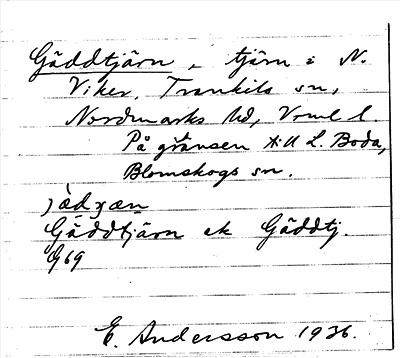 Gäddtjärn, tjärn i N.
Viker, Trankils sn,
Nordmarks hd, Vrml l.
På gränsen till L. Boda,
Blomskogs sn.
jädɣæn
Gäddtjärn ek Gäddtj.
G69
E. Andersson 1936.